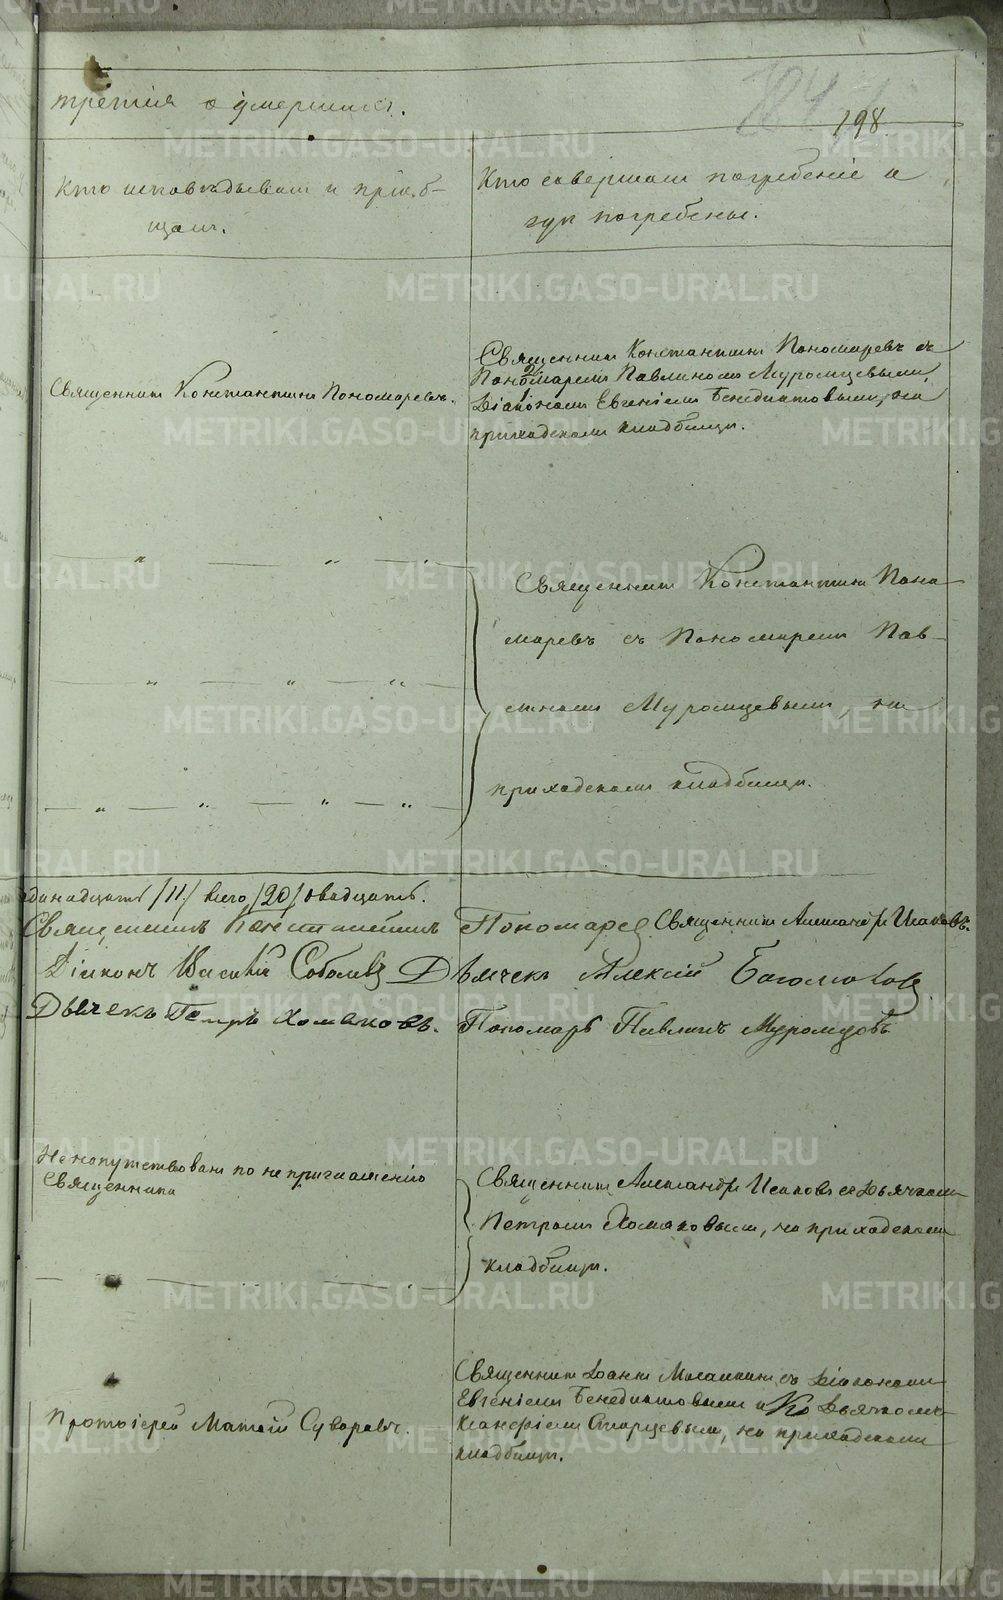 третия о умершихъ.
198
Кто исповѣдывалъ и пріоб-
щалъ.
Кто совершалъ погребеніе и
гдѣ погребены.
Священникъ Константинъ Пономаревъ.
Священникъ Константинъ Пономаревъ съ
Пономаремъ Павлиномъ Муромцевымъ,
Діакономъ Евгеніемъ Бенедиктовымъ, на
приходскомъ кладбищѣ.
— „ — „ — „ —
Священникъ Константинъ Поно
маревъ съ Пономаремъ Пав-
— „ — „ — „ —
линомъ Муромцевымъ, на
приходскомъ кладбищѣ.
— „ — „ — „ — „ —
одинадцать /11/ всего /20/ двадцать.
Священникъ Константинъ Пономаревъ Священникъ Александръ Исаковъ.
Діаконъ Василій Соболевъ Дьячекъ Алексій Боголюбовъ
Дьячекъ Петръ Хомяковъ. Пономарь Павлинъ Муромцовъ
Не напутствованъ по не приглашенію
Священника
Священникъ Александръ Исаковъ съ Дьячкомъ
Петромъ Хомяковымъ, на приходскомъ
кладбищѣ.
Протоіерей Матѳій Суворовъ.
Священникъ Іоаннъ съ Діакономъ
Евгеніемъ Бенедиктовымъ и Дьячкомъ
Старцевымъ, на приходскомъ
кладбищѣ.
METRIKI.GASO-URAL.RU